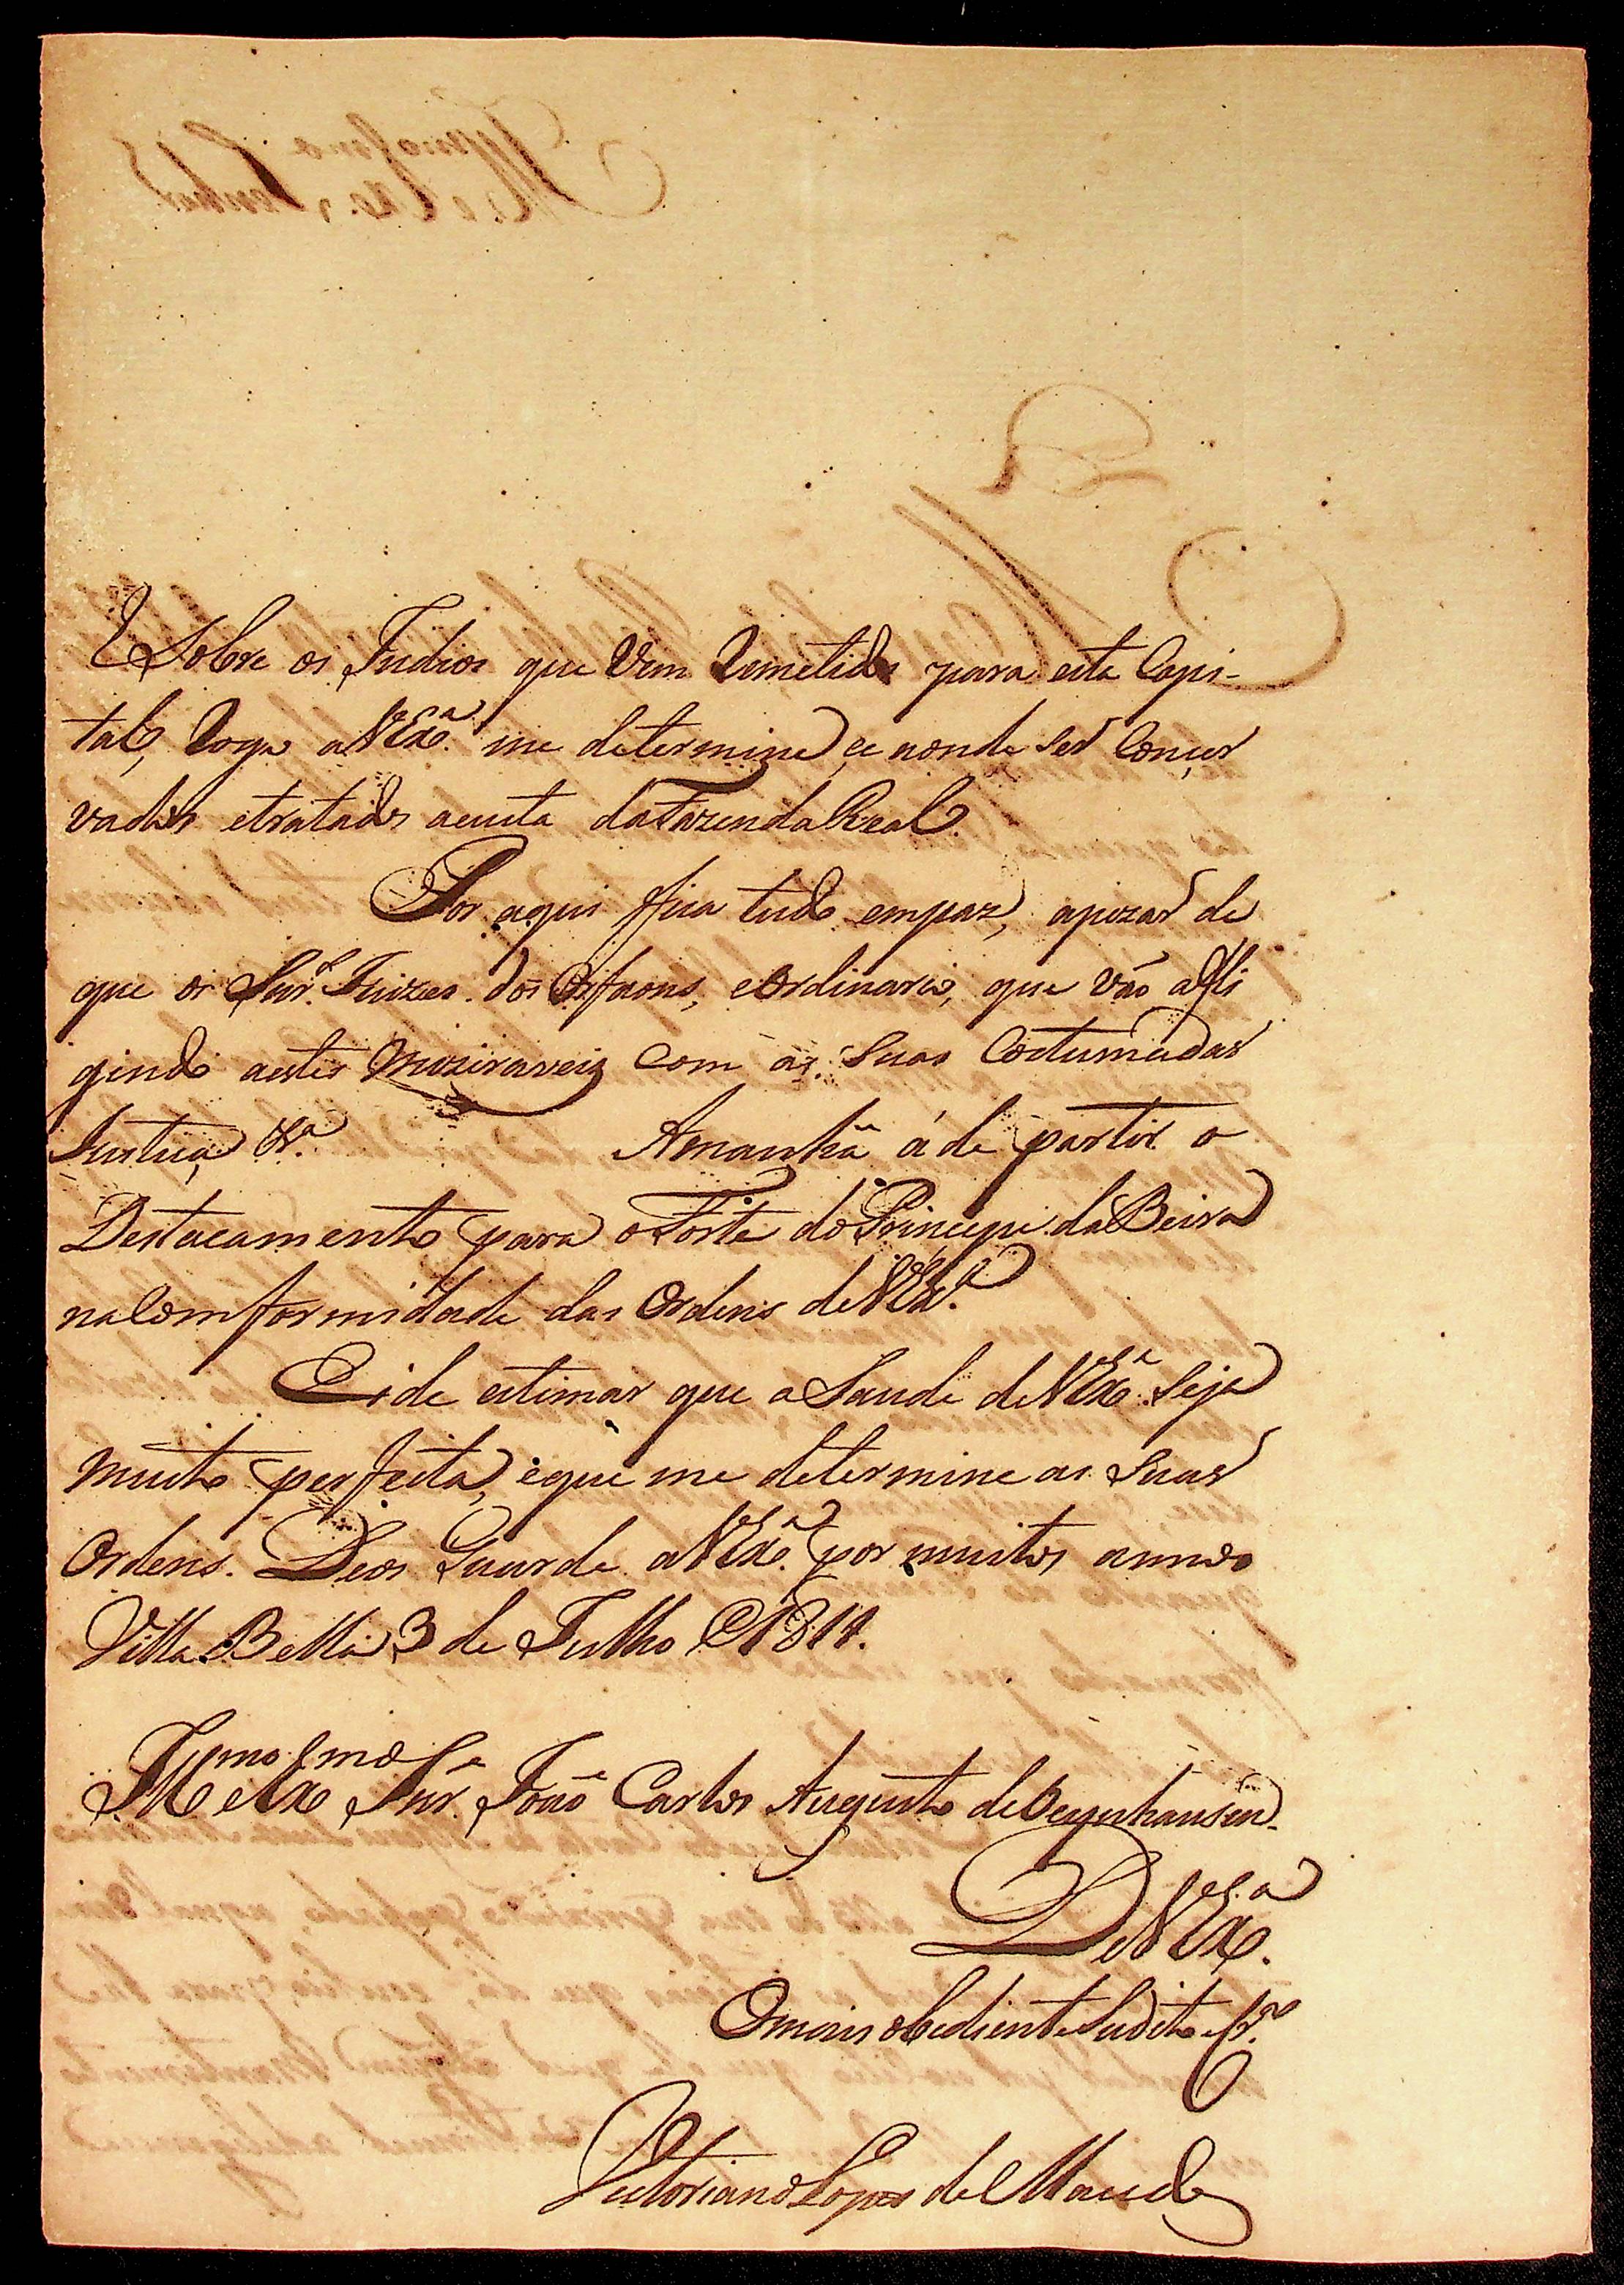 E Sobre os Indios que Vem Remetidos para esta Capi-
tal, Rogo a VEx.ª me determine, e aonde ser Conçer
vados etratados acusta daFazenda Real.
Por aqui ffica tudo empaz, apezar de
que os Snr.s Juizes dos Orfaons, eOrdinario, que vão affli
gindo aestes Mizeraveis Com as Suas Costumadas
Justiça &.ª Amanhã á de partir o
Destacamento para oForte doPrincipe daBeira
naComformidade das Ordens deVEx.ª
Eide estimar que aSaude deVEx.ª Seja
muito perfeita, eque me determine as Suas
Ordens. Deos Guarde aVEx.ª por muitos annos
Villa Bella 3 de Julho 1811.
Ill.mo eEx.mo Snr. João Carlos Augusto deOeynhausen
DeVEx.ª
Omais obediente Sudito eCr.º
Victoriano Lopes de Macedo